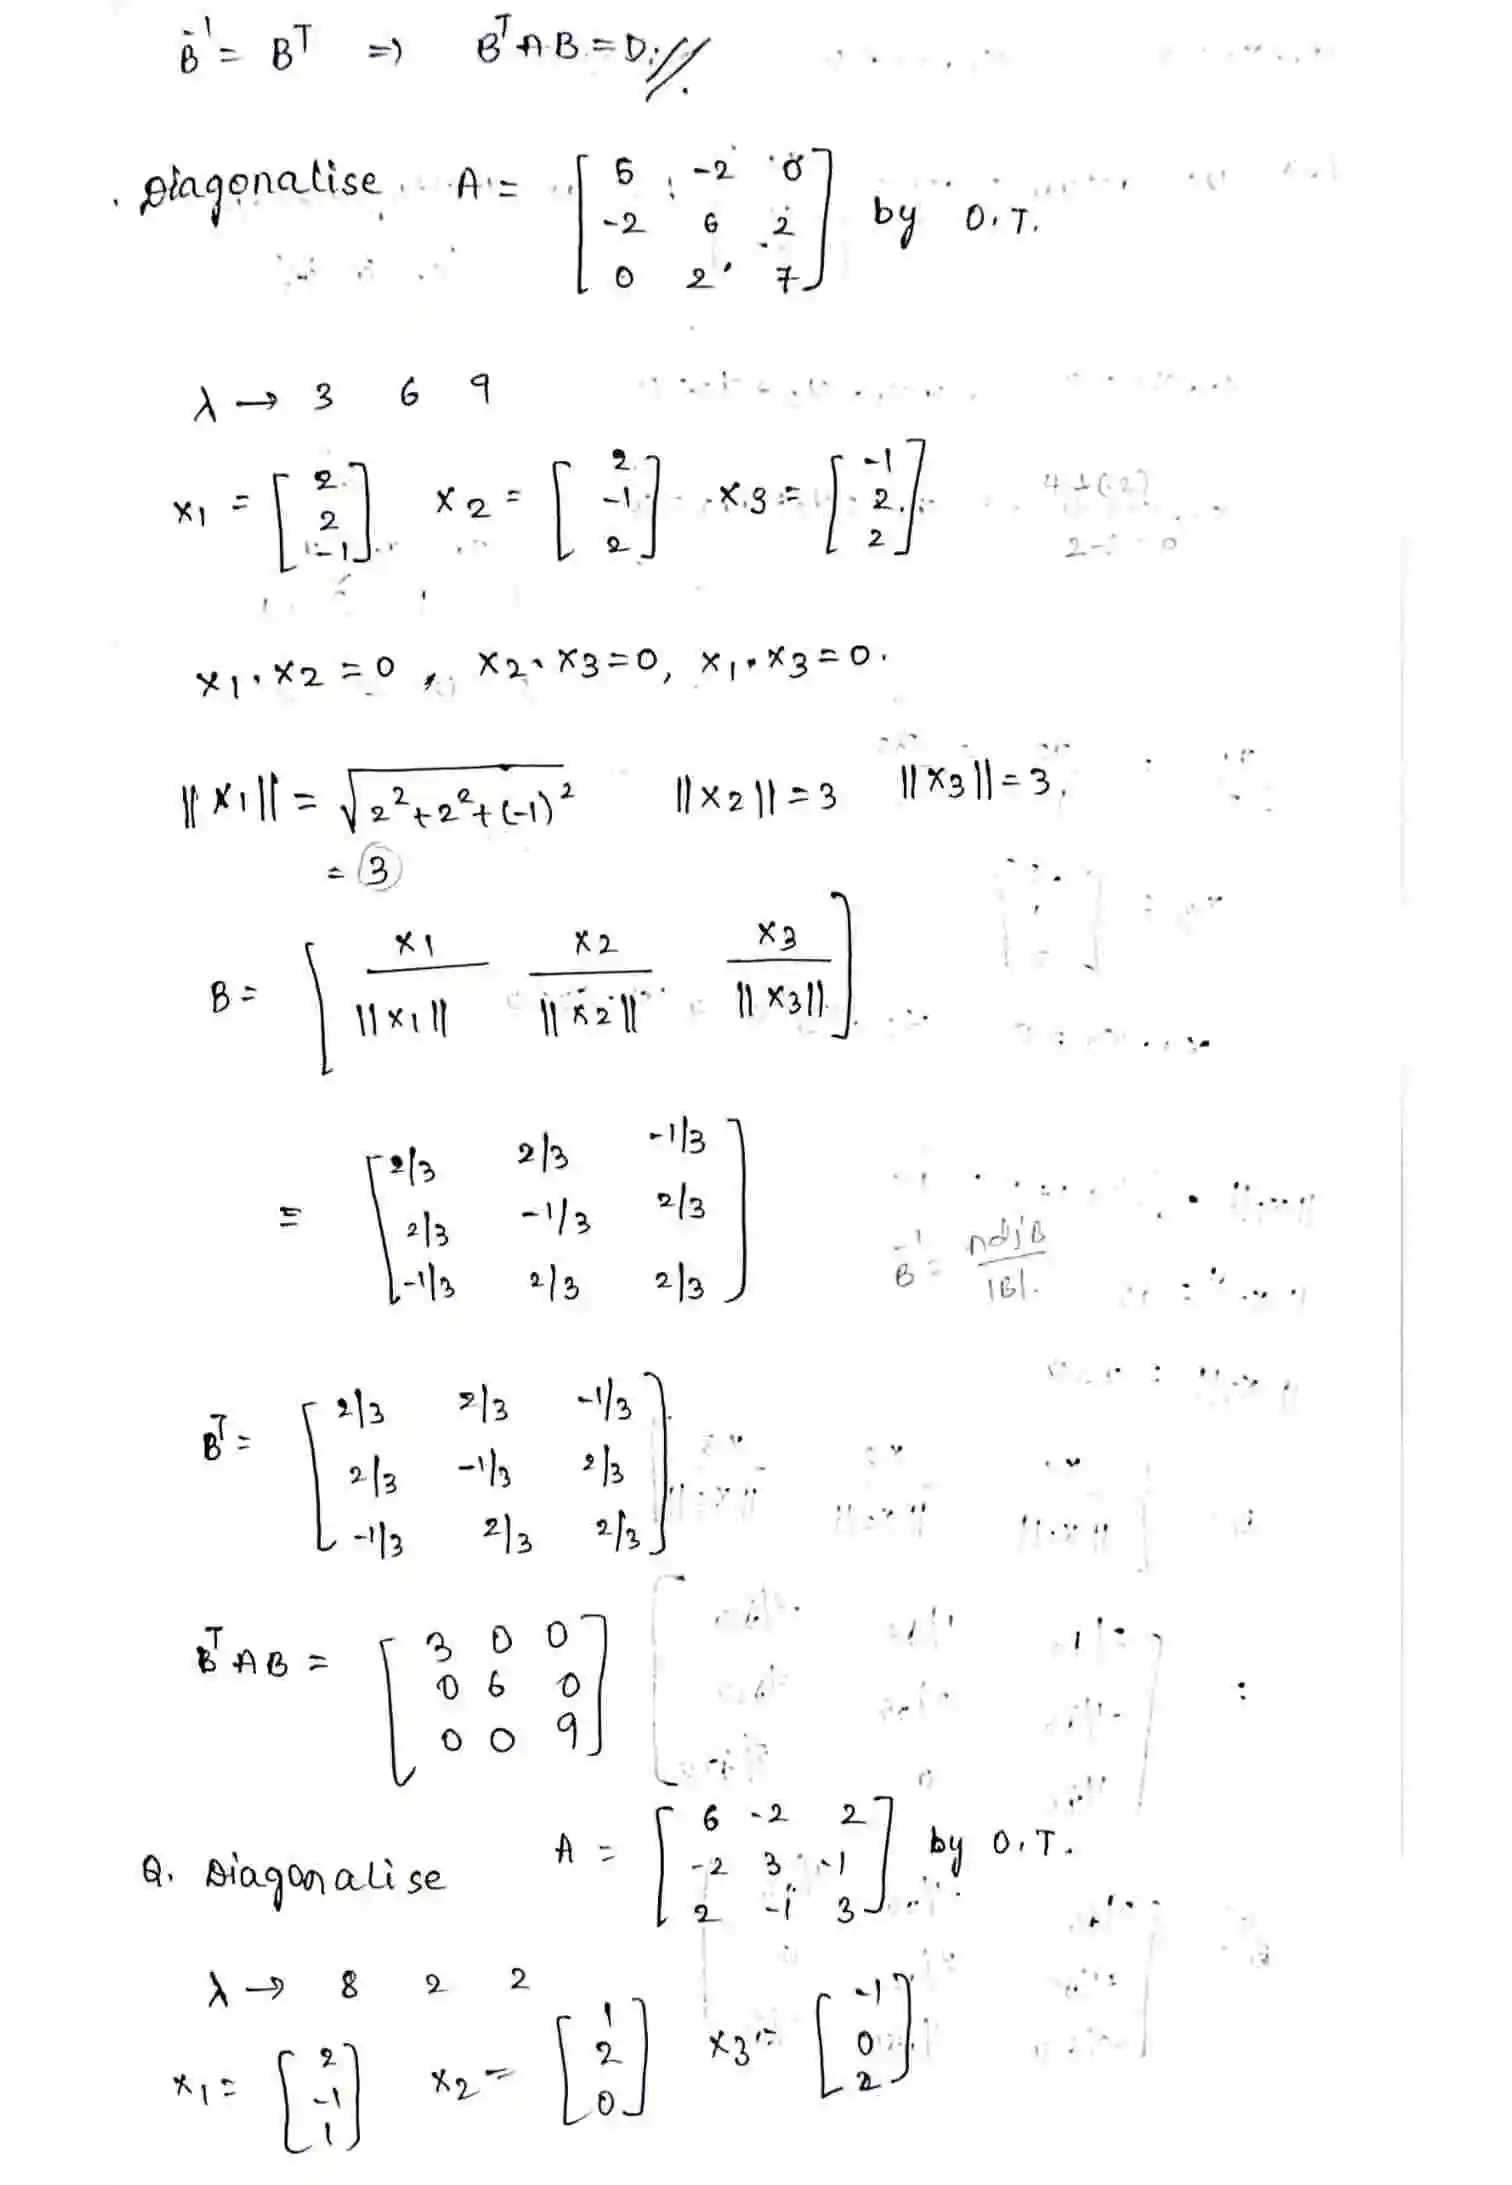 B⁻¹ = Bᵀ ⇒ BᵀAB = D.//.
. Diagonalise A = [ 5 -2 0
-2 6 2
0 2 7 ] by O.T.
λ → 3 6 9
x1 = [ 2 2 -1 ] x2 = [ 2 -1 2 ] x3 = [ -1 2 2 ]
x1 . x2 = 0 , x2 . x3 = 0, x1 . x3 = 0.
||x1|| = √2² + 2² + (-1)² ||x2|| = 3 ||x3|| = 3,
= 3
B = [ x1/||x1|| x2/||x2|| x3/||x3|| ]
= [ 2/3 2/3 -1/3
2/3 -1/3 2/3
-1/3 2/3 2/3 ]
B⁻¹ = adjB/|B|.
Bᵀ = [ 2/3 2/3 -1/3
2/3 -1/3 2/3
-1/3 2/3 2/3 ]
BᵀAB = [ 3 0 0
0 6 0
0 0 9 ]
Q. Diagonalise A = [ 6 -2 2
-2 3 -1
2 -1 3 ] by O.T.
λ → 8 2 2
x1 = [ 2 -1 1 ] x2 = [ 1 2 0 ] x3 = [ -1 0 2 ]